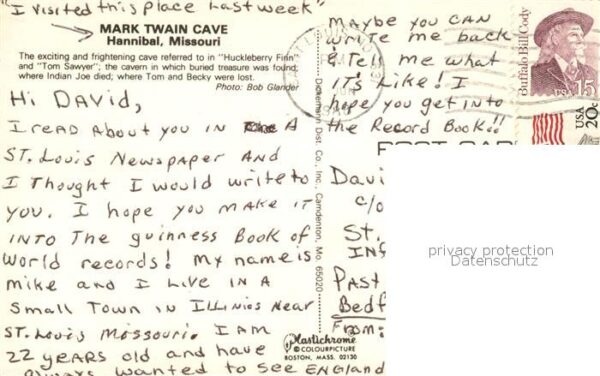 "I visited this place last week"
MARK TWAIN CAVE
Hannibal, Missouri
The exciting and frightening cave referred to in "Huckleberry Finn"
and "Tom Sawyer"; the cavern in which buried treasure was found;
where Indian Joe died; where Tom and Becky were lost.
Photo: Bob Glander
Hi David,
I read about you in A
St. Louis Newspaper and
I thought I would write to
you. I hope you make it
into the guinness Book of
world records! My name is
mike and I live in a
small town in Illinios near
St. Louis Missouri. I am
22 years old and have
always wanted to see England
Maybe you can
write me back
& tell me what
it's like! I
hope you get into
the Record Book!!
Dickemann Dist. Co., Inc., Camdenton, Mo. 65020
Plastichrome®
©COLOURPICTURE
BOSTON, MASS. 02130
Buffalo Bill Cody
USA 15
USA
20c
Davi
c/o
St.
Inf
Past
Bedf
From:
privacy protection
Datenschutz